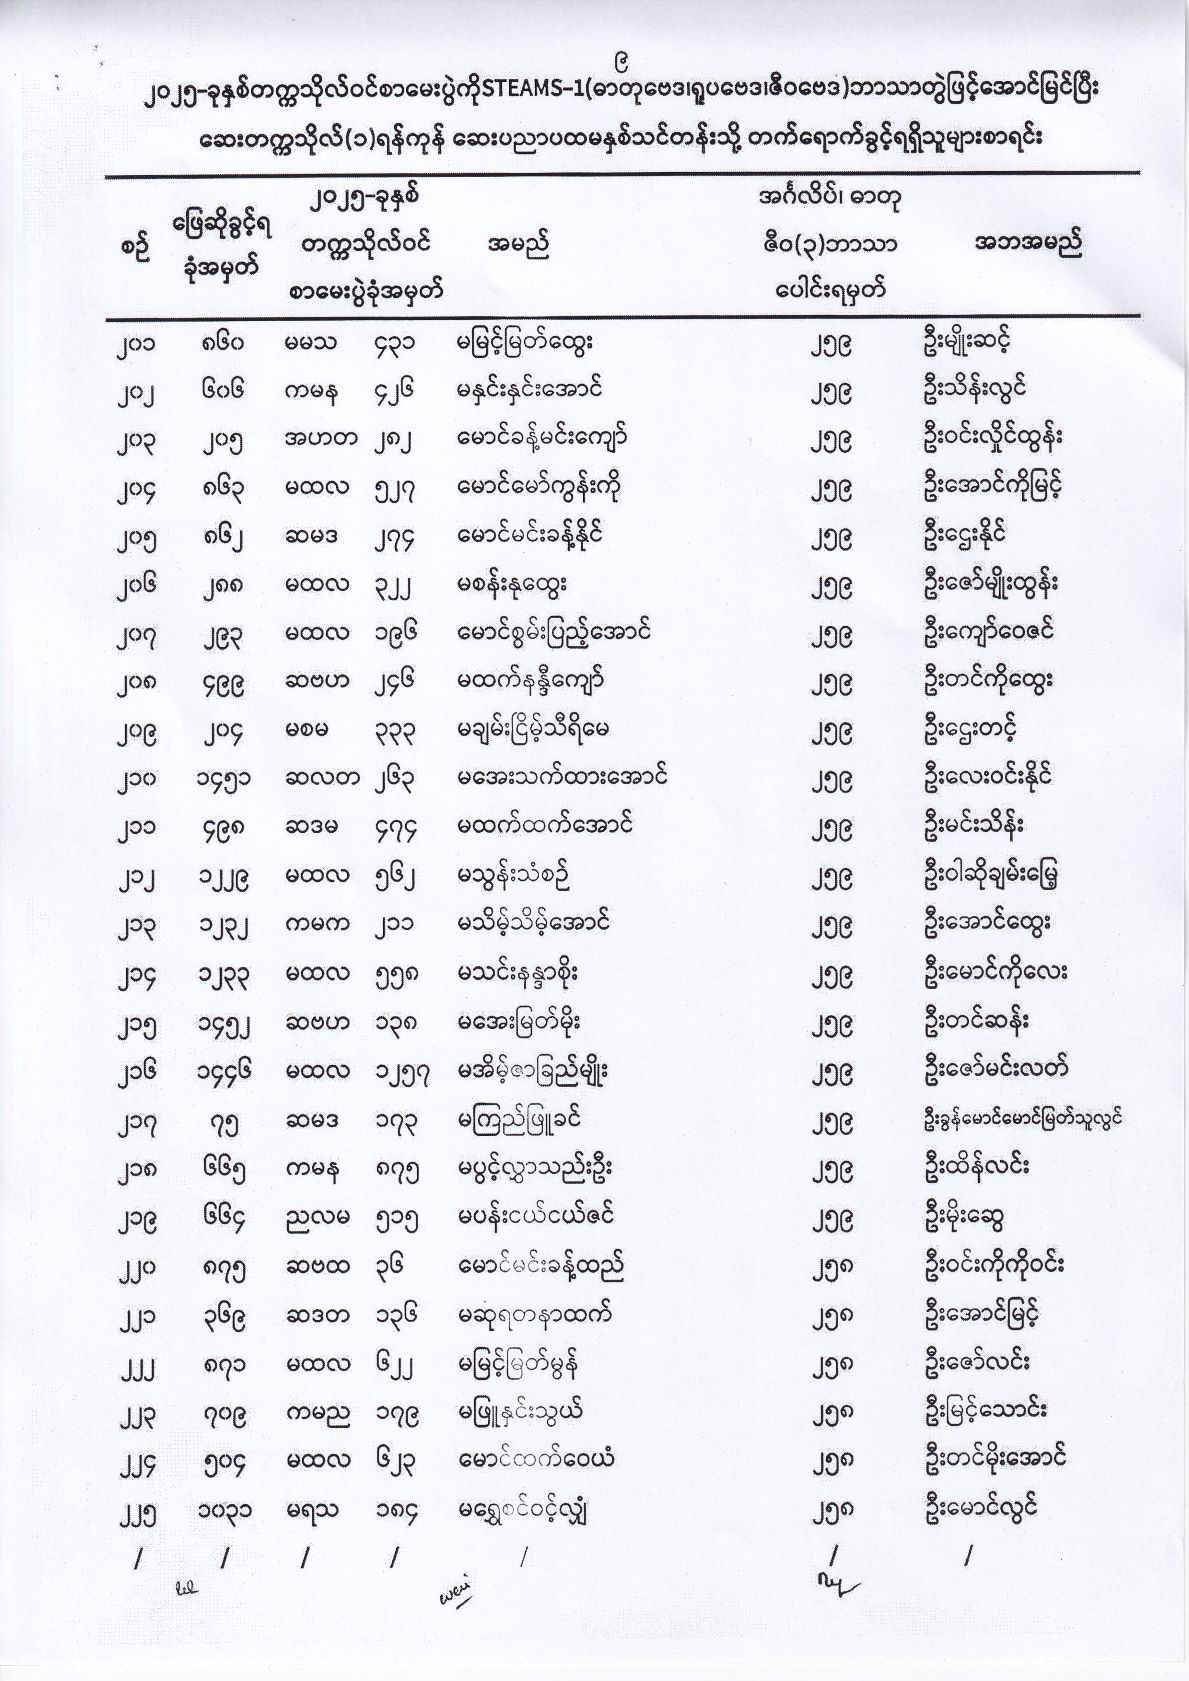 ၉
၂၀၂၅-ခုနှစ်တက္ကသိုလ်ဝင်စာမေးပွဲကိုSTEAMS-1(ဓာတုဗေဒ၊ရူပဗေဒ၊ဇီဝဗေဒ)ဘာသာတွဲဖြင့်အောင်မြင်ပြီး
ဆေးတက္ကသိုလ်(၁)ရန်ကုန် ဆေးပညာပထမနှစ်သင်တန်းသို့ တက်ရောက်ခွင့်ရရှိသူများစာရင်း
စဉ် ဖြေဆိုခွင့်ရ ခုံအမှတ် ၂၀၂၅-ခုနှစ် တက္ကသိုလ်ဝင် စာမေးပွဲခုံအမှတ် အမည် အင်္ဂလိပ်၊ ဓာတု ဇီဝ(၃)ဘာသာ ပေါင်းရမှတ် အဘအမည်
၂၀၁ ၈၆၀ မမသ ၄၃၁ မမြင့်မြတ်ထွေး ၂၅၉ ဦးမျိုးဆင့်
၂၀၂ ၆၀၆ ကမန ၄၂၆ မနှင်းနှင်းအောင် ၂၅၉ ဦးသိန်းလွင်
၂၀၃ ၂၀၅ အဟတ ၂၈၂ မောင်ခန့်မင်းကျော် ၂၅၉ ဦးဝင်းလှိုင်ထွန်း
၂၀၄ ၈၆၃ မထလ ၅၂၇ မောင်မော်ကွန်းကို ၂၅၉ ဦးအောင်ကိုမြင့်
၂၀၅ ၈၆၂ ဆမဒ ၂၇၄ မောင်မင်းခန့်နိုင် ၂၅၉ ဦးဌေးနိုင်
၂၀၆ ၂၈၈ မထလ ၃၂၂ မစန်းနုထွေး ၂၅၉ ဦးဇော်မျိုးထွန်း
၂၀၇ ၂၉၃ မထလ ၁၉၆ မောင်စွမ်းပြည့်အောင် ၂၅၉ ဦးကျော်ဝေဇင်
၂၀၈ ၄၉၉ ဆဗဟ ၂၄၆ မထက်နန္ဒီကျော် ၂၅၉ ဦးတင်ကိုထွေး
၂၀၉ ၂၀၄ မစမ ၃၃၃ မချမ်းငြိမ့်သီရိမေ ၂၅၉ ဦးဌေးတင့်
၂၁၀ ၁၄၅၁ ဆလတ ၂၆၃ မအေးသက်ထားအောင် ၂၅၉ ဦးလေးဝင်းနိုင်
၂၁၁ ၄၉၈ ဆဒမ ၄၇၄ မထက်ထက်အောင် ၂၅၉ ဦးမင်းသိန်း
၂၁၂ ၁၂၂၉ မထလ ၅၆၂ မသွန်းသံစဉ် ၂၅၉ ဦးဝါဆိုချမ်းမြေ့
၂၁၃ ၁၂၃၂ ကမက ၂၁၁ မသိမ့်သိမ့်အောင် ၂၅၉ ဦးအောင်ထွေး
၂၁၄ ၁၂၃၃ မထလ ၅၅၈ မသင်းနန္ဒာစိုး ၂၅၉ ဦးမောင်ကိုလေး
၂၁၅ ၁၄၅၂ ဆဗဟ ၁၃၈ မအေးမြတ်မိုး ၂၅၉ ဦးတင်ဆန်း
၂၁၆ ၁၄၄၆ မထလ ၁၂၅၇ မအိမ့်ဇာခြည်မျိုး ၂၅၉ ဦးဇော်မင်းလတ်
၂၁၇ ၇၅ ဆမဒ ၁၇၃ မကြည်ဖြူခင် ၂၅၉ ဦးခွန်မောင်မောင်မြတ်သူလွင်
၂၁၈ ၆၆၅ ကမန ၈၇၅ မပွင့်လွှာသည်းဦး ၂၅၉ ဦးထိန်လင်း
၂၁၉ ၆၆၄ ညလမ ၅၁၅ မပန်းငယ်ငယ်ဇင် ၂၅၉ ဦးမိုးဆွေ
၂၂၀ ၈၇၅ ဆဗထ ၃၆ မောင်မင်းခန့်ထည် ၂၅၈ ဦးဝင်းကိုကိုဝင်း
၂၂၁ ၃၆၉ ဆဒတ ၁၃၆ မဆုရတနာထက် ၂၅၈ ဦးအောင်မြင့်
၂၂၂ ၈၇၁ မထလ ၆၂၂ မမြင့်မြတ်မွန် ၂၅၈ ဦးဇော်လင်း
၂၂၃ ၇၀၉ ကမည ၁၇၉ မဖြူနှင်းသွယ် ၂၅၈ ဦးမြင့်သောင်း
၂၂၄ ၅၀၄ မထလ ၆၂၃ မောင်ထက်ဝေယံ ၂၅၈ ဦးတင်မိုးအောင်
၂၂၅ ၁၀၃၁ မရသ ၁၈၄ မရွှေစင်ဝင့်လျှံ ၂၅၈ ဦးမောင်လွင်
/ / / / / / /